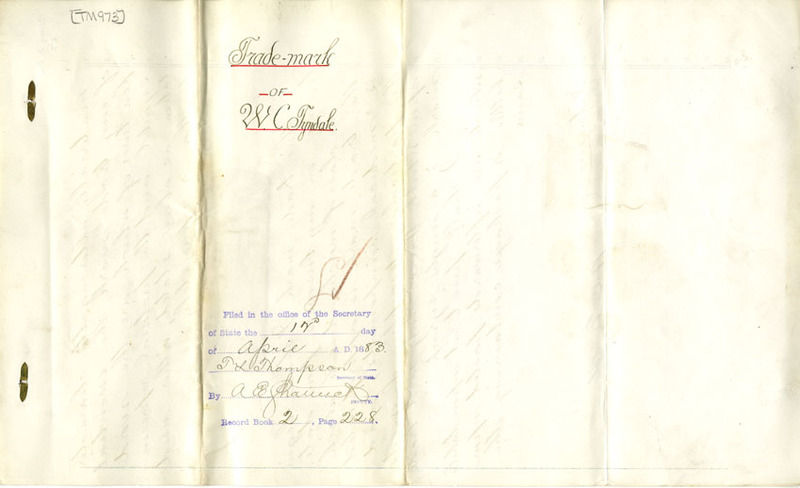 [TM973]
Trade-mark
OF
W. C. Tyndale.
Filed in the office of the Secretary
of State the day
of April A. D. 1883.
T L Thompson
Secretary of State.
By A E
DEPUTY.
Record Book 2, Page 228.